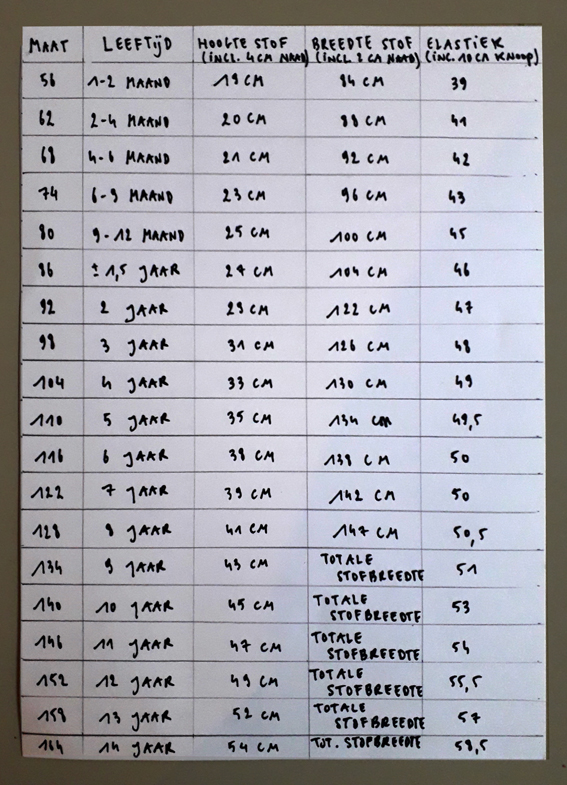 MAAT LEEFTIJD HOOGTE STOF BREEDTE STOF ELASTIEK
(INCL. 4CM NAAD) (INCL 2 CM NAAD) (INC. 10 CM KNOOP)
56 1-2 MAAND 19 CM 84 CM 39
62 2-4 MAAND 20 CM 88 CM 41
68 4-6 MAAND 21 CM 92 CM 42
74 6-9 MAAND 23 CM 96 CM 43
80 9-12 MAAND 25 CM 100 CM 45
86 ± 1,5 JAAR 27 CM 104 CM 46
92 2 JAAR 29 CM 122 CM 47
98 3 JAAR 31 CM 126 CM 48
104 4 JAAR 33 CM 130 CM 49
110 5 JAAR 35 CM 134 CM 49,5
116 6 JAAR 38 CM 138 CM 50
122 7 JAAR 39 CM 142 CM 50
128 8 JAAR 41 CM 147 CM 50,5
134 9 JAAR 43 CM TOTALE STOFBREEDTE 51
140 10 JAAR 45 CM TOTALE STOFBREEDTE 53
146 11 JAAR 47 CM TOTALE STOFBREEDTE 54
152 12 JAAR 49 CM TOTALE STOFBREEDTE 55,5
158 13 JAAR 52 CM TOTALE STOFBREEDTE 57
164 14 JAAR 54 CM TOT. STOFBREEDTE 58,5